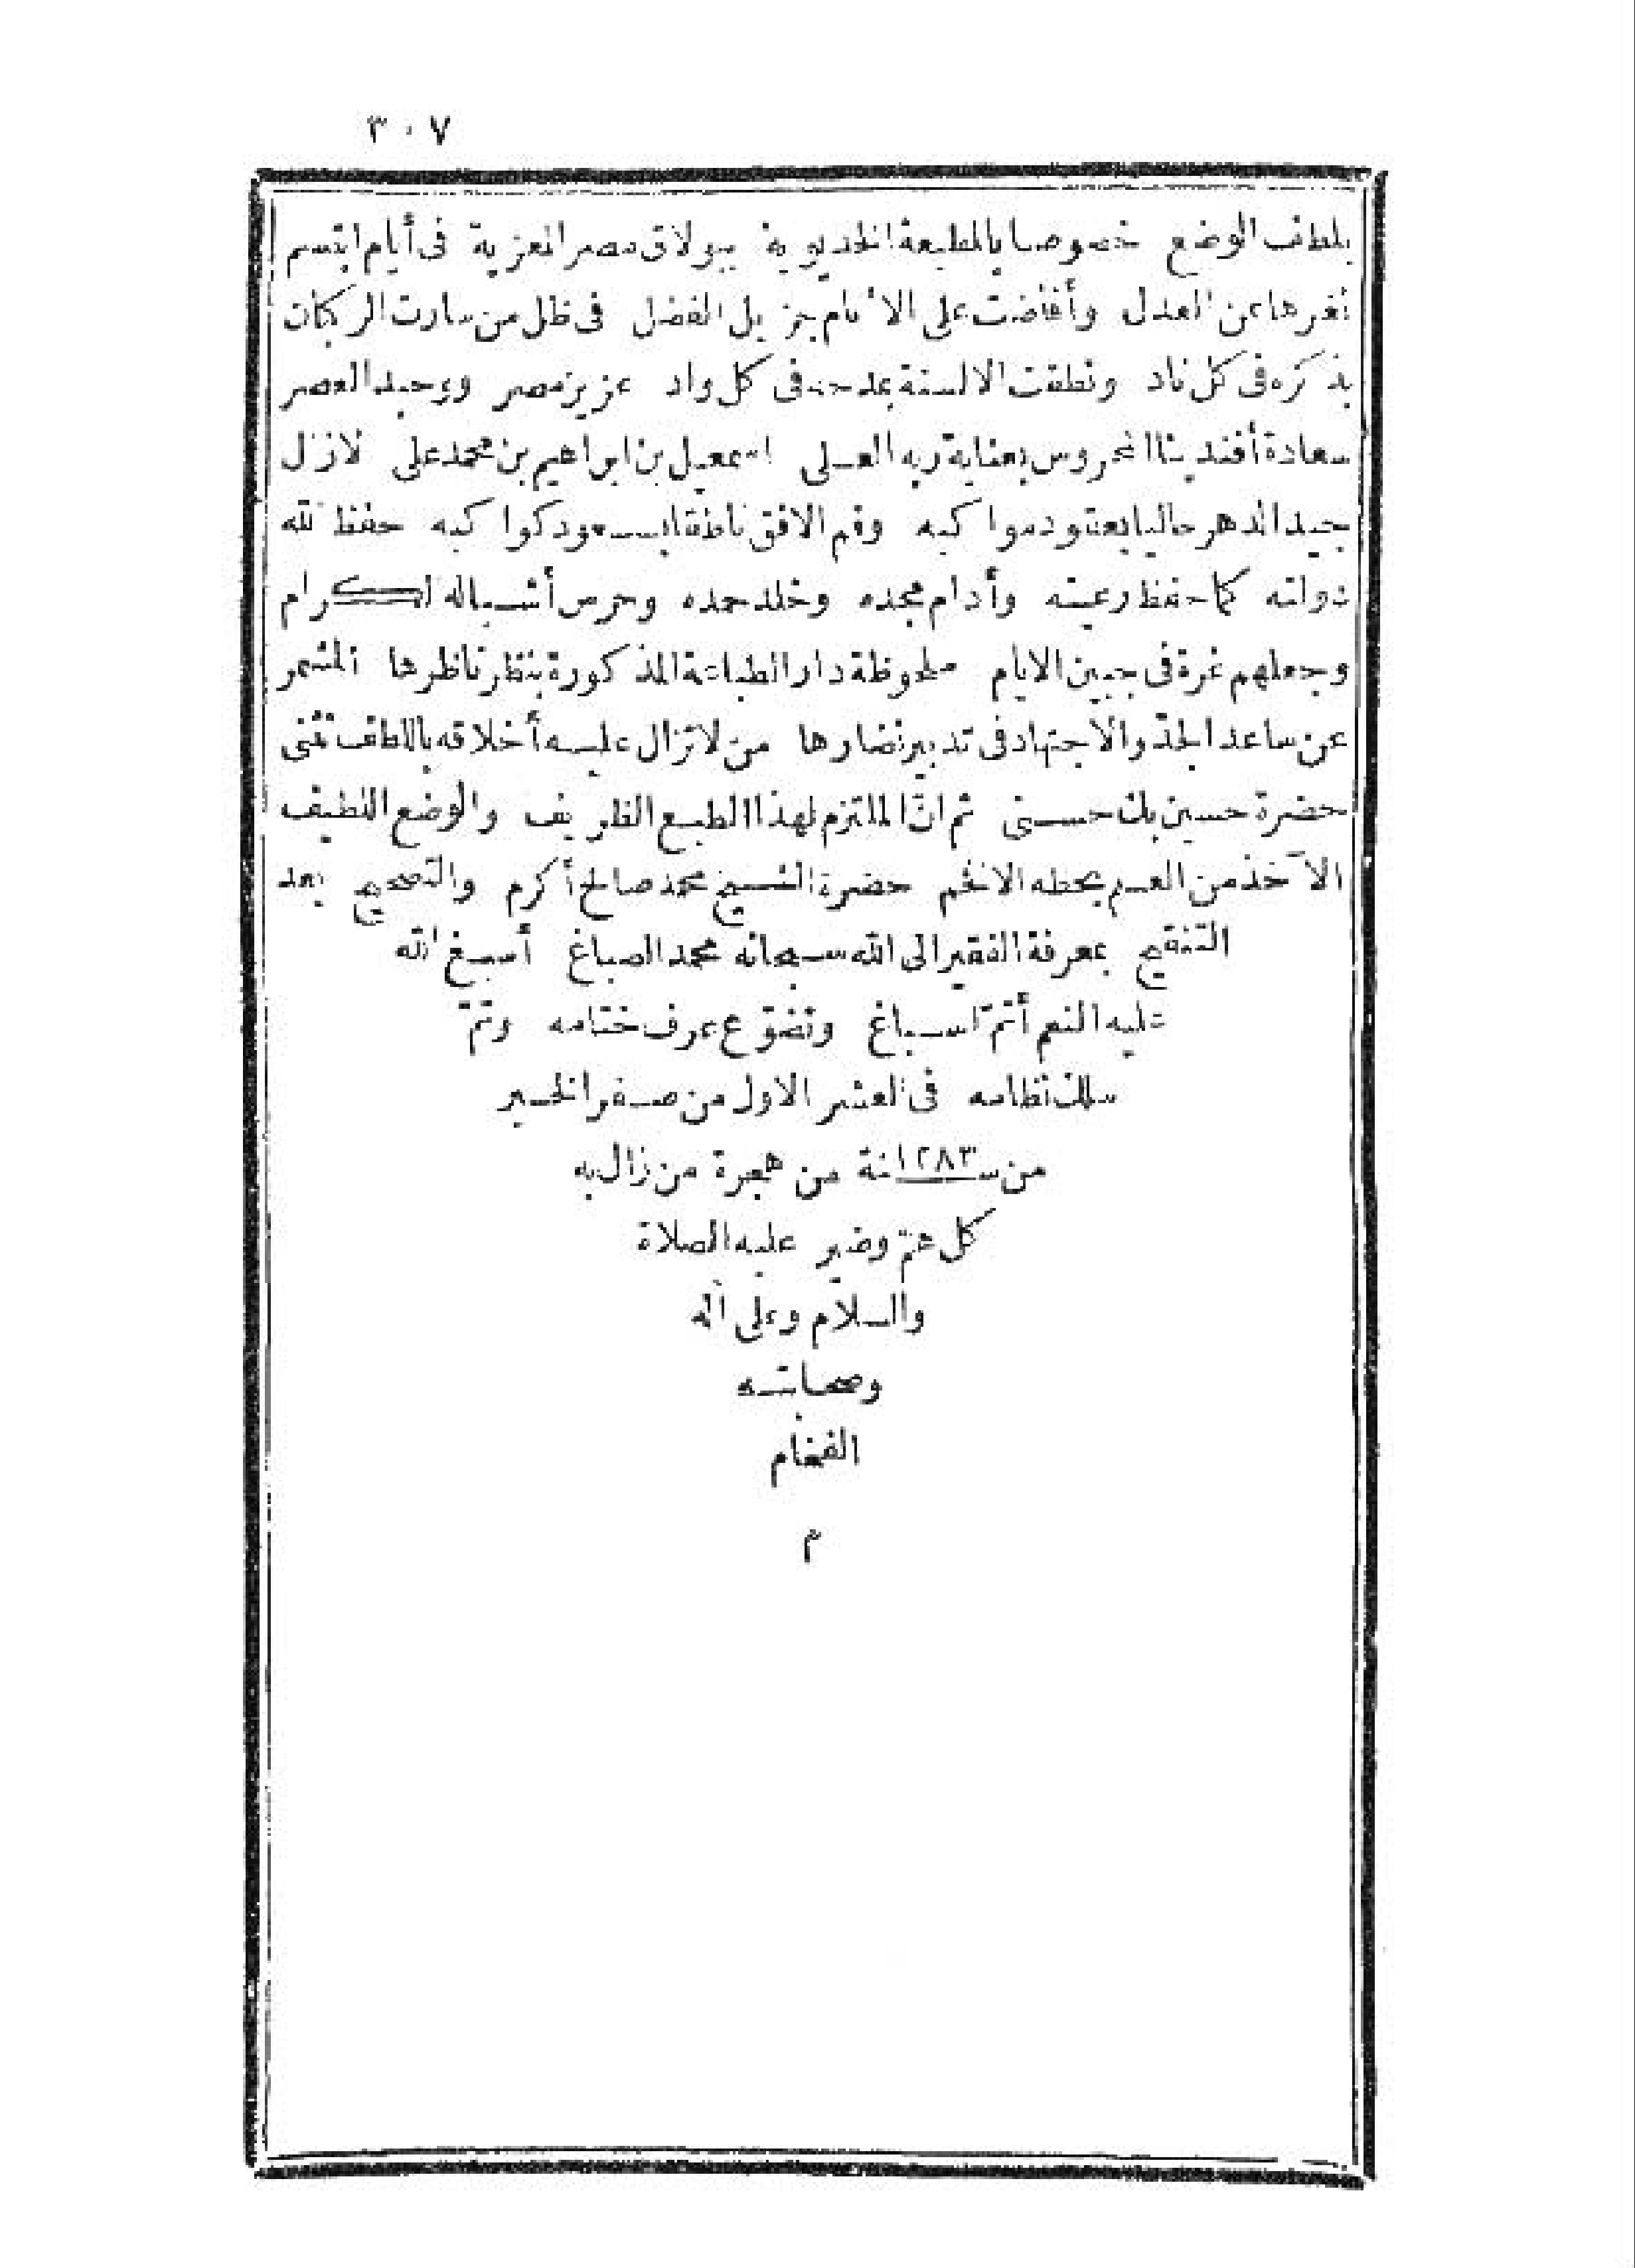 ٣٠٧
بلطائف الوضع خصوصا بالمطبعة الخديوية ببولاق مصر المعزية فى أيام ابتسم
ثغرها عن العدل وأفاضت على الأنام جزيل الفضل فى ظل من سارت الركبان
بذكره فى كل ناد ونطقت الالسنة بمدحه فى كل واد عزيز مصر ووحيد العصر
سعادة أفندينا المحروس بعناية ربه العلى اسمعيل بن ابراهيم بن محمد على لازال
جيد الدهر حاليا بعقود مواكبه وفم الافق ناطقا بسعود كواكبه حفظ الله
دولته كما حفظ رعيته وأدام مجده وخلد حمده وحرس أشباله الكرام
وجعلهم غرة فى جبين الايام ملحوظة دار الطباعة المذكورة بنظر ناظرها المشمر
عن ساعد الجدّ والاجتهاد فى تدبير نضارها من لا تزال عليه أخلاقه باللطف تثنى
حضرة حسين بك حسنى ثم انّ الملتزم لهذا الطبع الظريف والوضع اللطيف
الآخذ من العلم بحظه الافخم حضرة الشيخ محمد صالح أكرم والتصحيح بعد
التنقيح بمعرفة الفقير الى الله سبحانه محمد الصباغ أسبغ الله
عليه النعم أتمّ اسباغ وتضوّع عرف ختامه وتمّ
سلك نظامه فى العشر الاول من صفر الخير
من سنة ١٢٨٣ من هجرة من زال به
كل غمّ وضير عليه الصلاة
والسلام وعلى آله
وصحابته
الفخام
م